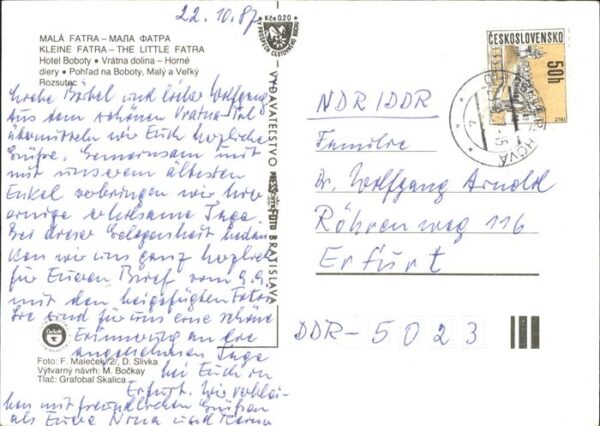 22.10.87
MALÁ FATRA – МАЛА ФАТРА
KLEINE FATRA – THE LITTLE FATRA
Hotel Boboty • Vrátna dolina – Horné
diery • Pohľad na Boboty, Malý a Veľký
Rozsutec
Liebe Bärbel und lieber Wolfgang
Aus dem schönen Vratna Tal
übermitteln wir Euch herzliche
Grüße. Gemeinsam mit
mit unserem ältesten
Enkel verbringen wir hier
einige erholsame Tage.
Bei dieser Gelegenheit bedan
ken wir uns ganz herzlich
für Euren Brief vom 9.9.
mit den beigefügten Fotos
Sie sind für uns eine schöne
Erinnerung an die
angenehmen Tage
bei Euch in
Erfurt. Wir verblei
ben mit freundlichen Grüßen
als Eure Nina und
Čedok
Foto: F. Maleček/2/, D. Slivka
Výtvarný návrh: M. Bočkay
Tlač: Grafobal Skalica
Kčs 0,20
VYDAVATEĽSTVO PRESSFOTO BRATISLAVA
ČESKOSLOVENSKO
50h
NDR/DDR
Familie
Dr. Wolfgang Arnold
Röhrenweg 116
Erfurt
DDR-5023